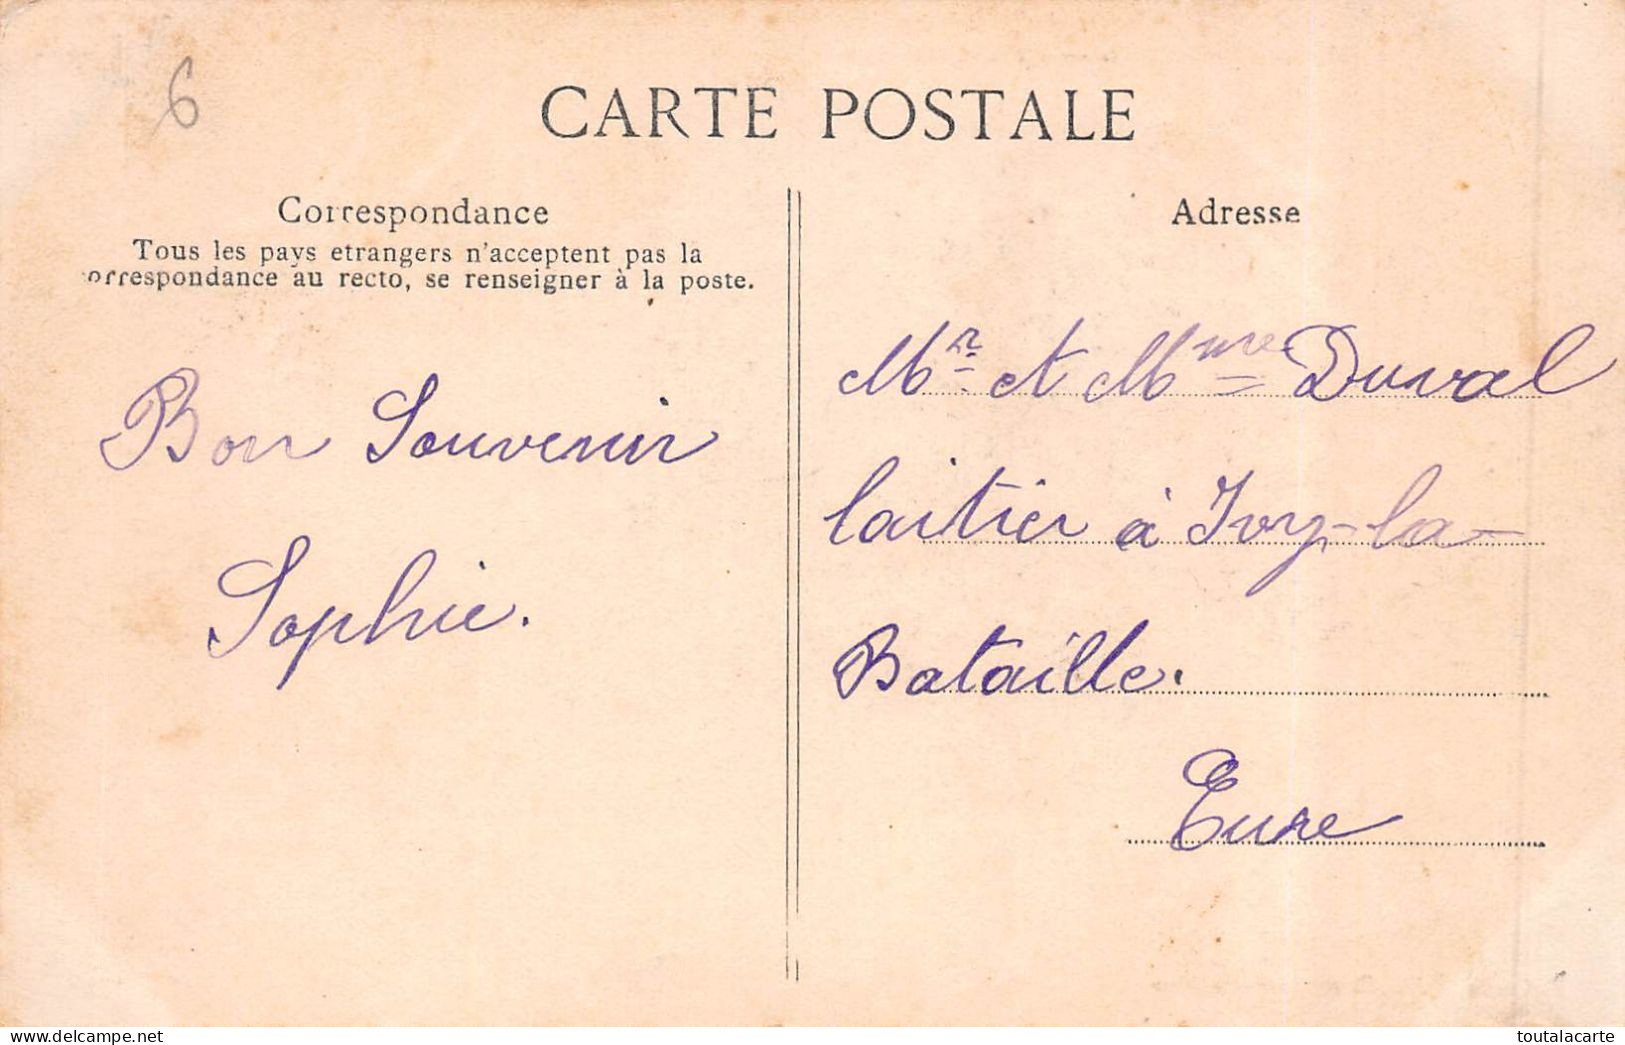 6
CARTE POSTALE
Correspondance
Tous les pays etrangers n'acceptent pas la
correspondance au recto, se renseigner à la poste.
Bon Souvenir
Sophie.
Adresse
Mr et Mme Duval
laitier à Ivry-la-
Bataille.
Eure
delcampe.net
toutalacarte